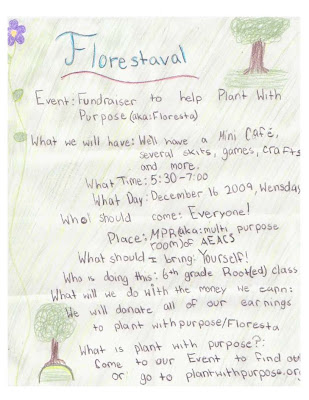 Florestaval
Event: Fundraiser to help Plant With
Purpose (aka: Floresta)
What we will have: We'll have a Mini Café,
several skits, games, crafts
and more.
What Time: 5:30-7:00
What Day: December 16 2009, Wensday
Who should come: Everyone!
Place: MPR (aka: multi purpose
room) of AEACS
What should I bring: Yourself!
Who is doing this: 6th grade Root(ed) class
What will we do with the money we earn:
We will donate all of our earnings
to plant with purpose/Floresta
What is plant with purpose?:
Come to our Event to find out
or go to plantwithpurpose.org